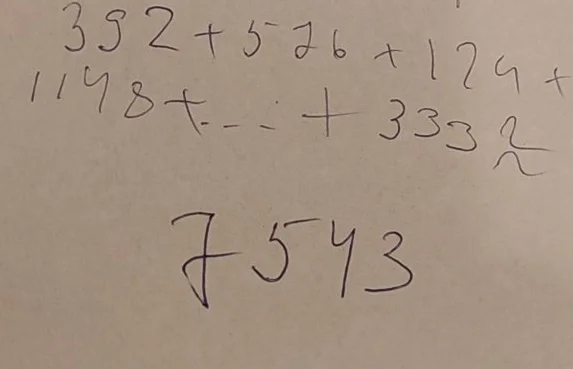 392+576+124+
1148+...+3332
7543